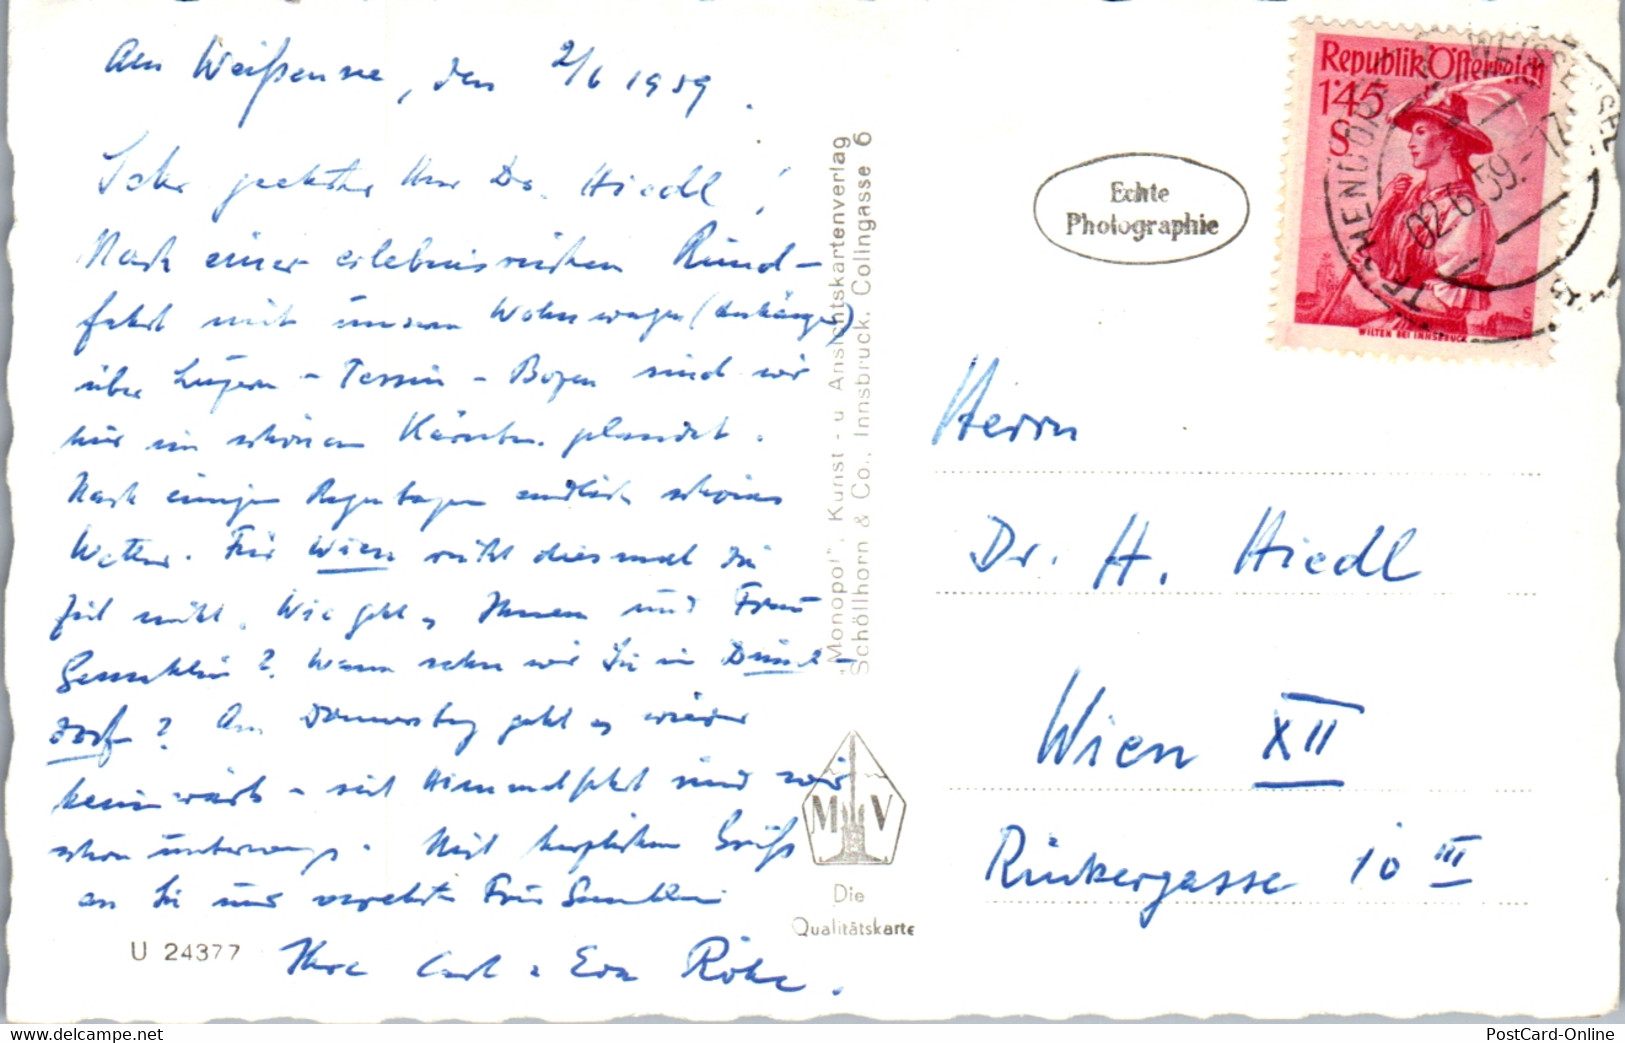 Am Weißensee, den 2/6 1959.
Sehr geehrter Herr Dr. Hiedl!
Nach einer erlebnisreichen Rund-
fahrt mit unserem Wohnwagen (Anhänger)
über Luzern - Tessin - Bozen sind wir
hier im schönen Kärnten gelandet.
Nach einigen Regentagen endlich schönes
Wetter. Für Wien reicht diesmal die
Zeit nicht. Wie geht es Ihnen und Frau
Gemahlin? Wann sehen wir Sie in Düssel-
dorf? Am Donnerstag geht es wieder
heimwärts - seit Himmelfahrt sind wir
schon unterwegs. Mit herzlichen Grüßen
an Sie und verehrte Frau Gemahlin
Ihre Carl u Eva
U 24377
"Monopol", Kunst- u Ansichtskartenverlag
Schöllhorn & Co., Innsbruck, Colingasse 6
MV
Die
Qualitätskarte
Echte
Photographie
Republik Österreich
1'45
S
WILTEN BEI INNSBRUCK
02.6.59.-17
WEISSENSEE
Herrn
Dr. H. Hiedl
Wien XII
Rückergasse 10 III
www.delcampe.net
PostCard-Online